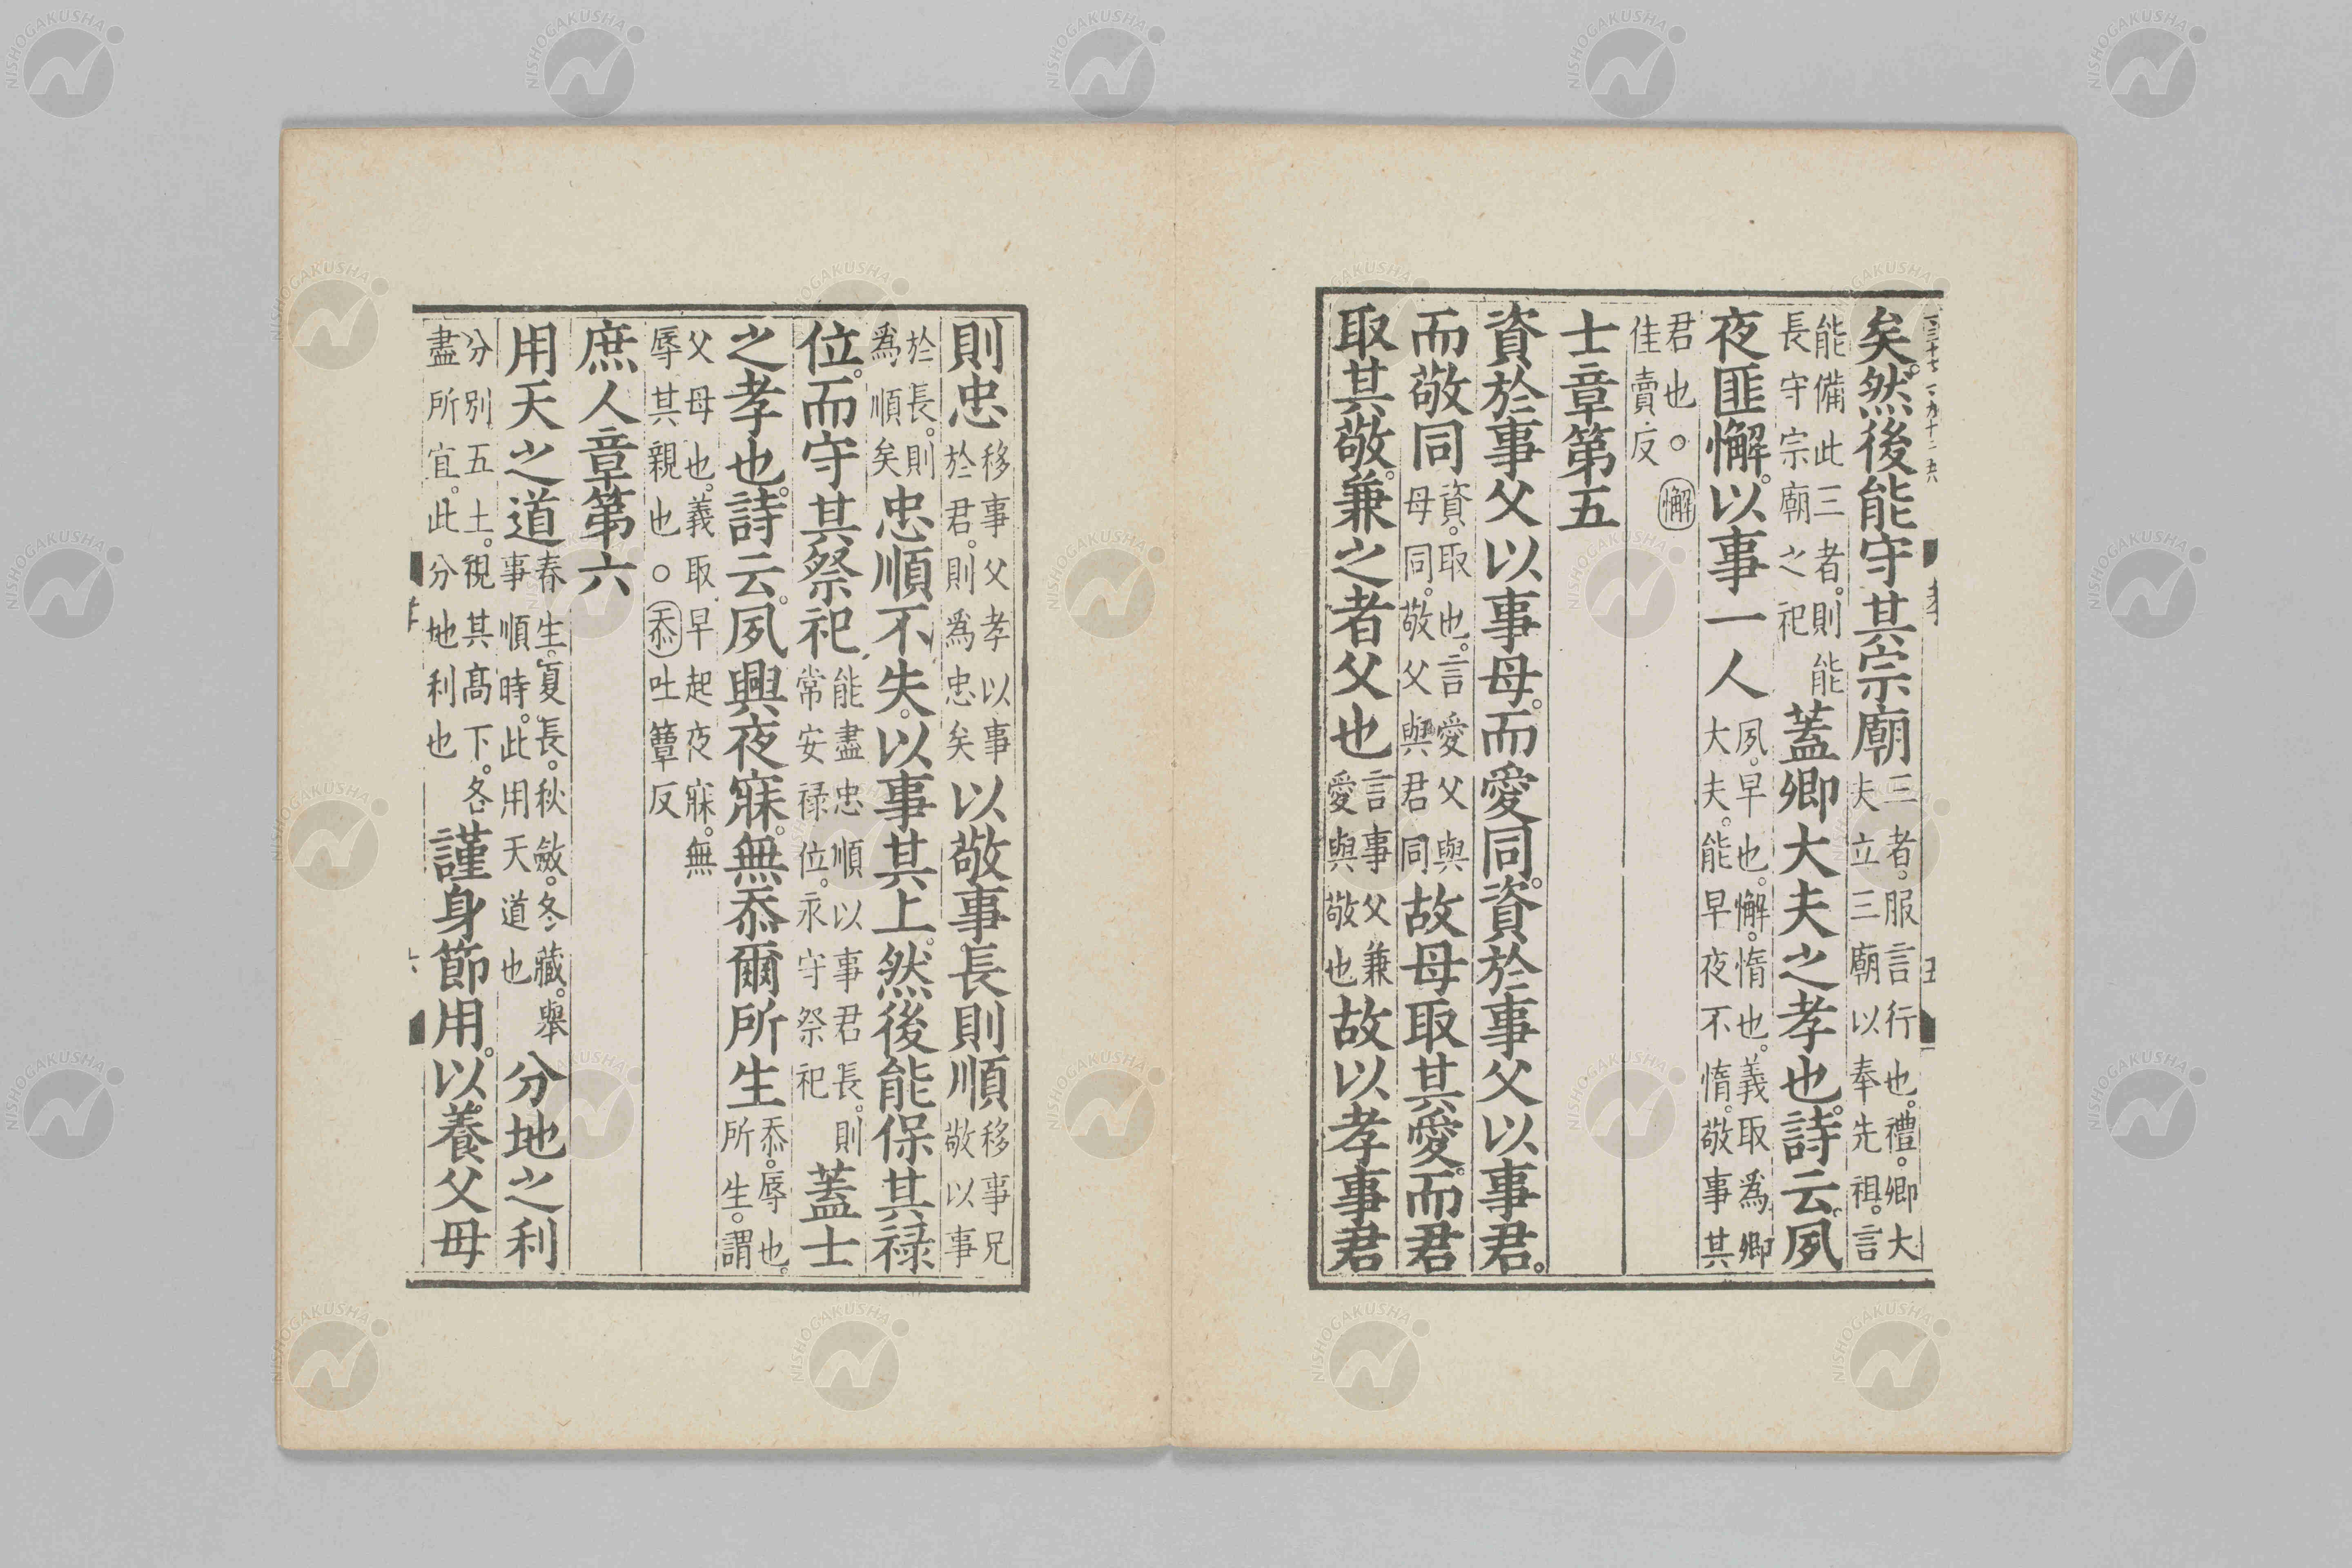 矣。然後能守其宗廟三者。服言行也。禮。卿大夫立三廟以奉先祖。言
能備此三者。則能長守宗廟之祀蓋卿大夫之孝也。詩云。夙
夜匪懈。以事一人夙。早也。懈。惰也。義取爲卿大夫。能早夜不惰。敬事其
君也。○懈佳賣反
士章第五
資於事父以事母。而愛同。資於事父以事君。
而敬同資。取也。言愛父與母同。敬父與君同故母取其愛。而君
取其敬。兼之者父也言事父兼愛與敬也故以孝事君
則忠移事父孝以事於君。則爲忠矣以敬事長則順移事兄敬以事
於長。則爲順矣忠順不失。以事其上。然後能保其祿
位。而守其祭祀能盡忠順以事君長。則常安祿位。永守祭祀蓋士
之孝也。詩云。夙興夜寐。無忝爾所生忝。辱也。所生。謂
父母也。義取早起夜寐。無辱其親也○忝吐簟反
庶人章第六
用天之道春生。夏長。秋斂。冬藏。舉事順時。此用天道也分地之利
分別五土。視其高下。各盡所宜。此分地利也謹身節用。以養父母
NISHOGAKUSHA